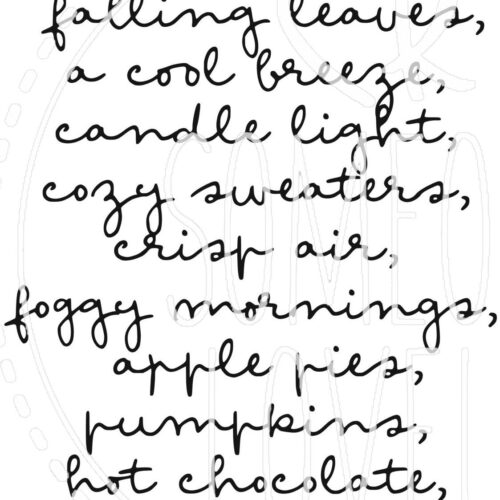 falling leaves,
a cool breeze,
candle light,
cozy sweaters,
crisp air,
foggy mornings,
apple pies,
pumpkins,
hot chocolate,